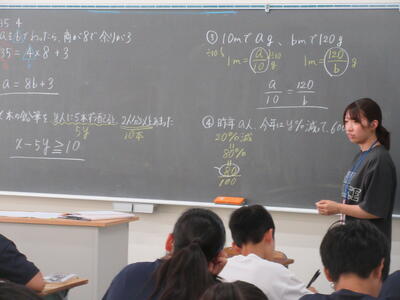 35 4
aをbでわったら、商が8で余りが3
35 = 4×8+3
a = 8b+3
x本の鉛筆を、y人に5本ずつ配ると、2人分以上あまった
5y
10本
x-5y≧10
③ 10mでag、bmで120g
÷10
1m = a/10 g
÷10
1m = 120/b g
a/10 = 120/b
④ 昨年a人、今年はy%減って、600
20%減
80%
80/100